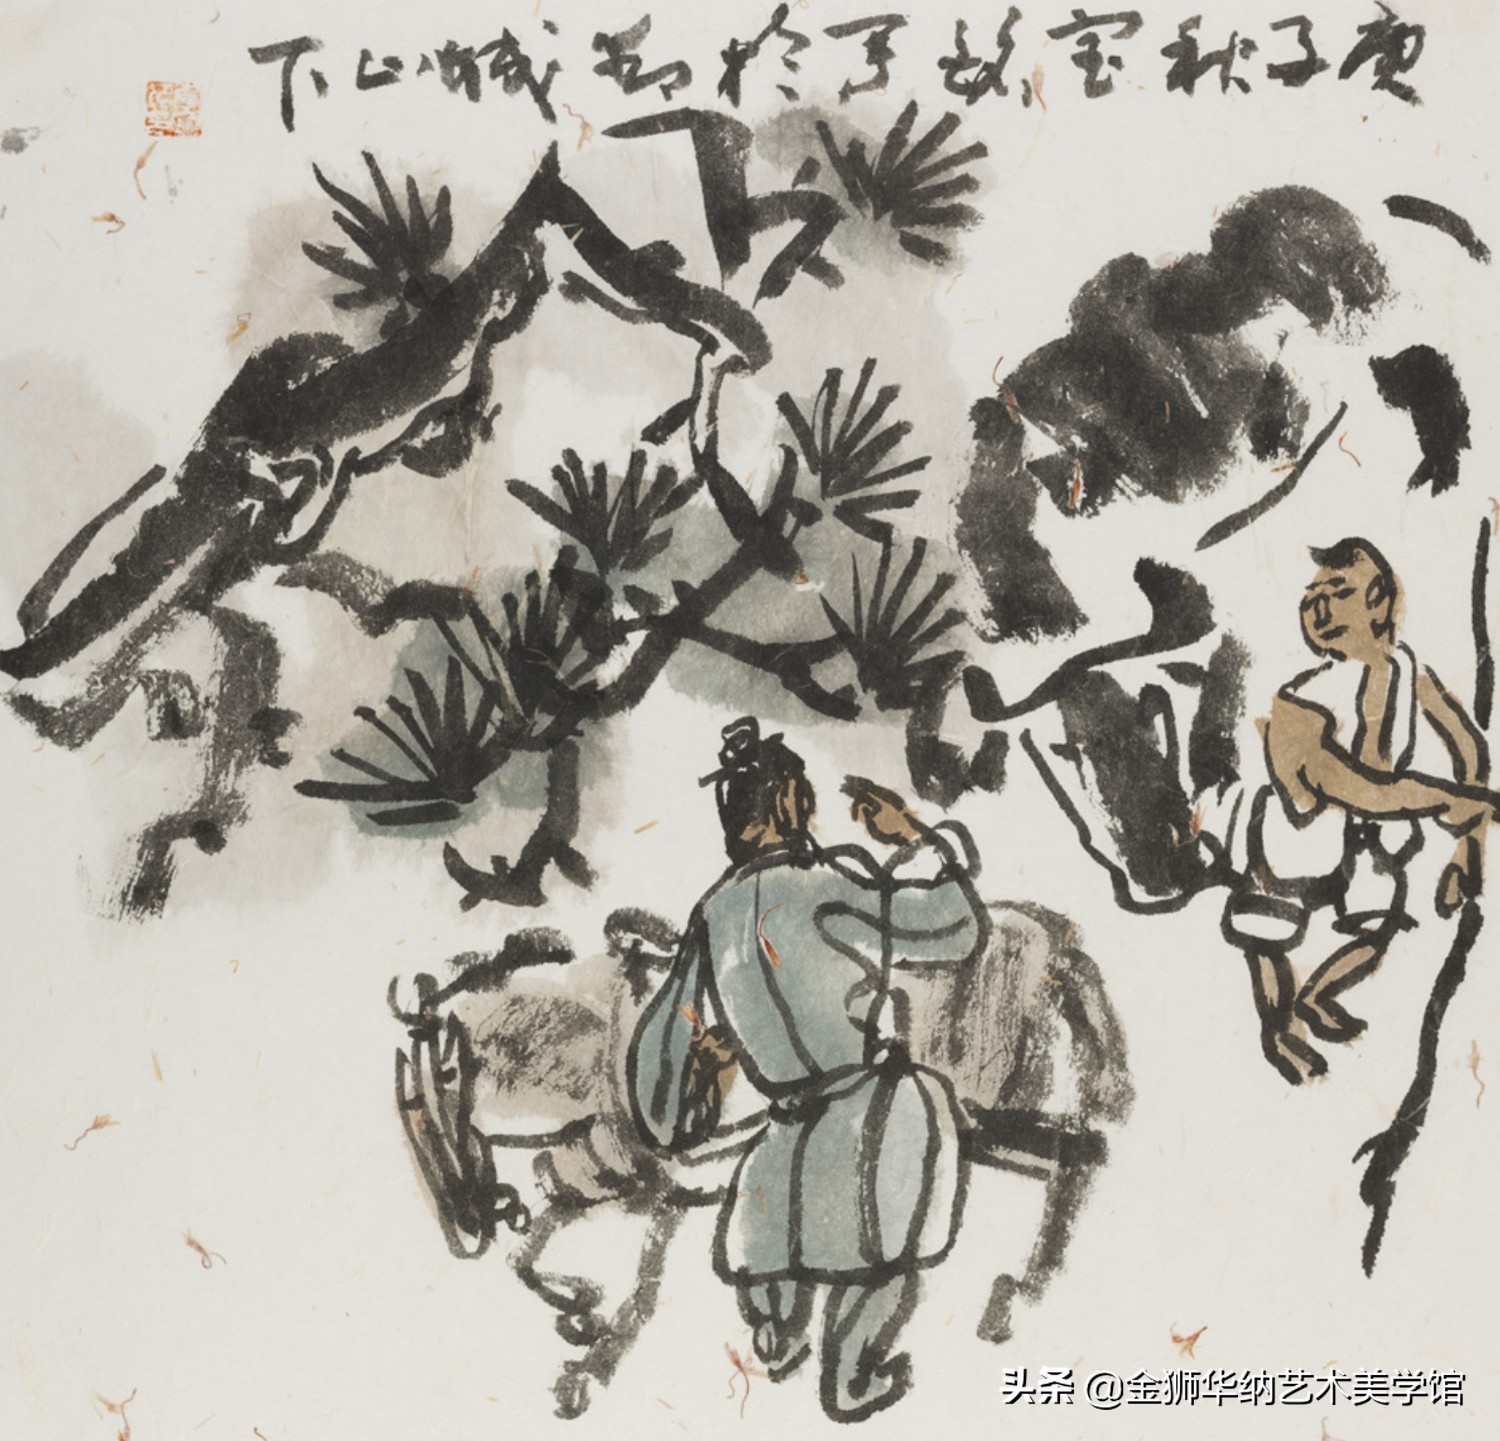 庚子秋宝写於城山下
头条 @金狮华纳艺术美学馆